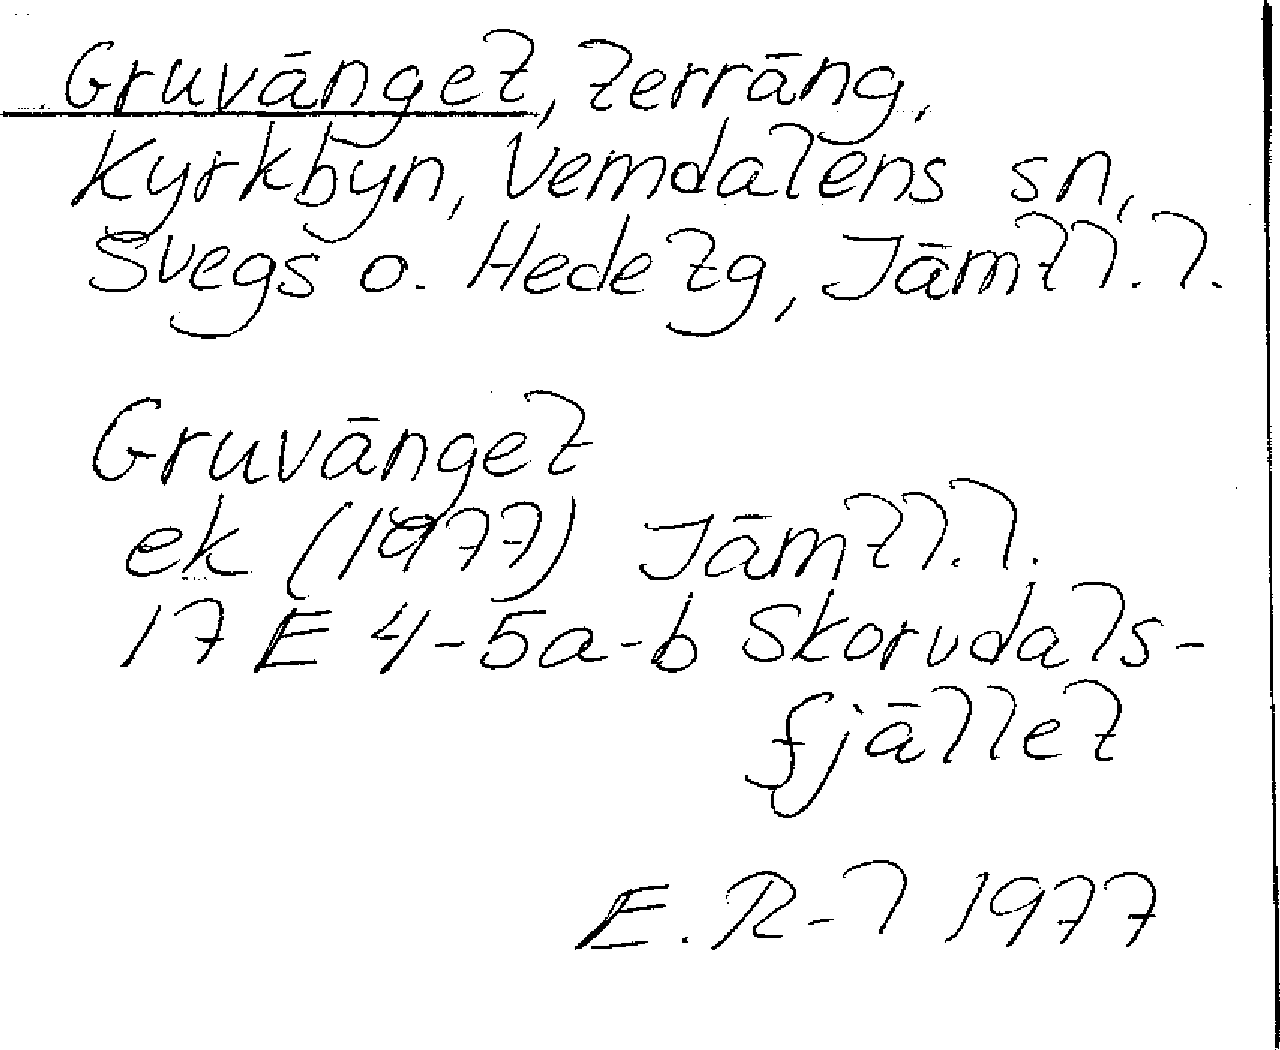 Gruvänget, terräng,
Kyrkbyn, Vemdalens sn,
Svegs o. Hede tg, Jämtl. l.
Gruvänget
ek (1977) Jämtl. l.
17 E 4-5a-b Skorvdals-
fjället
E. R-l 1977